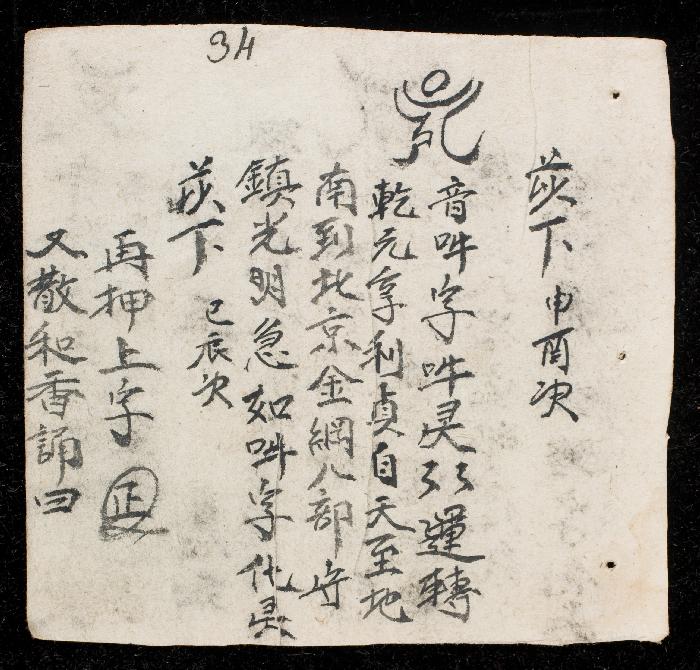 34
茲下 申酉次
音吽字吽灵㳄運轉
乾元亨利貞自天至地
南到北京金網八部将
鎮光明急如吽字化灵
茲下 巳辰次
再押上字 正
又散和香誦曰